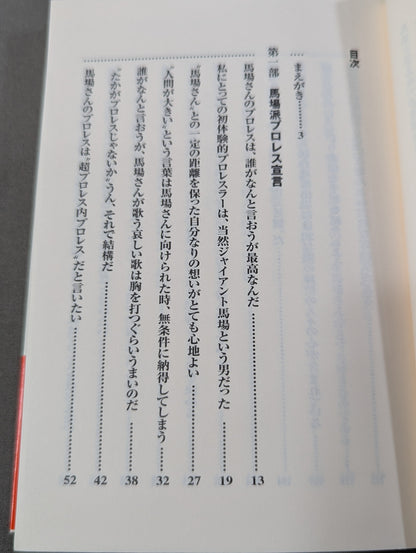 目次
まえがき………3
第一部 馬場派プロレス宣言
馬場さんのプロレスは、誰がなんと言おうが最高なんだ………13
私にとっての初体験的プロレスラーは、当然ジャイアント馬場という男だった………19
“馬場さん”との一定の距離を保った自分なりの想いがとても心地よい………27
“人間が大きい”という言葉は馬場さんに向けられた時、無条件に納得してしまう………32
誰がなんと言おうが、馬場さんが歌う哀しい歌は胸を打つぐらいうまいのだ………38
“たかがプロレスじゃないか”うん、それで結構だ………42
馬場さんのプロレスは“超プロレス内プロレス”だと言いたい………52